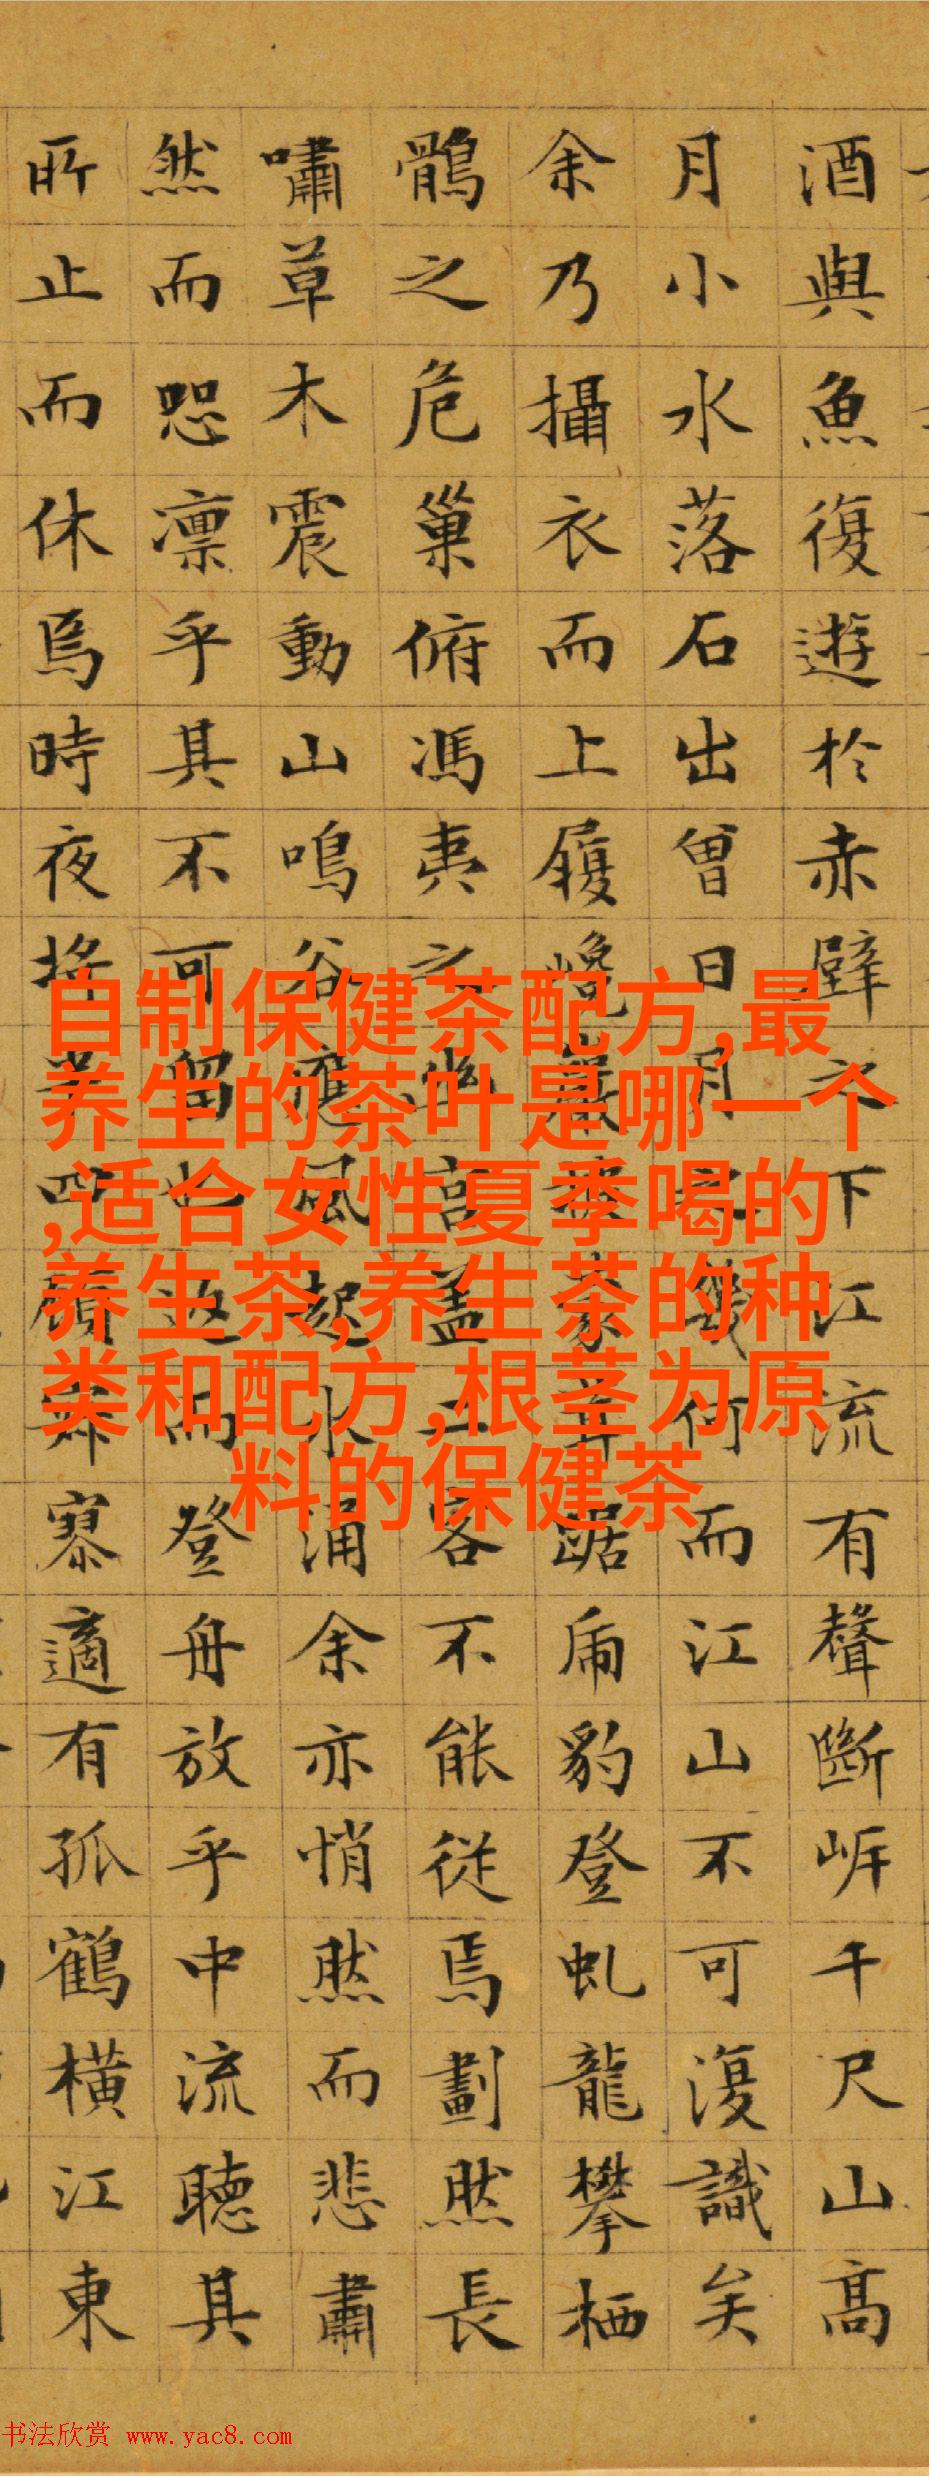 酒與魚復遊於赤壁之下江流有聲斷岸千尺山高
月小水落石出曾日月之幾何而江山不可復識矣
余乃攝衣而上履巉巖披蒙茸踞虎豹登虬龍攀栖
鶻之危巢俯馮夷之幽宮蓋二客不能從焉劃然長
嘯草木震動山鳴谷應風起水涌余亦悄然而悲肅
然而恐凛乎其不可留也返而登舟放乎中流聽其
所止而休焉時夜將半四顧寂寥適有孤鶴橫江東
自制保健茶配方,最
养生的茶叶是哪一个
,适合女性夏季喝的
养生茶,养生茶的种
类和配方,根茎为原
料的保健茶
书法欣赏 www.yac8.com